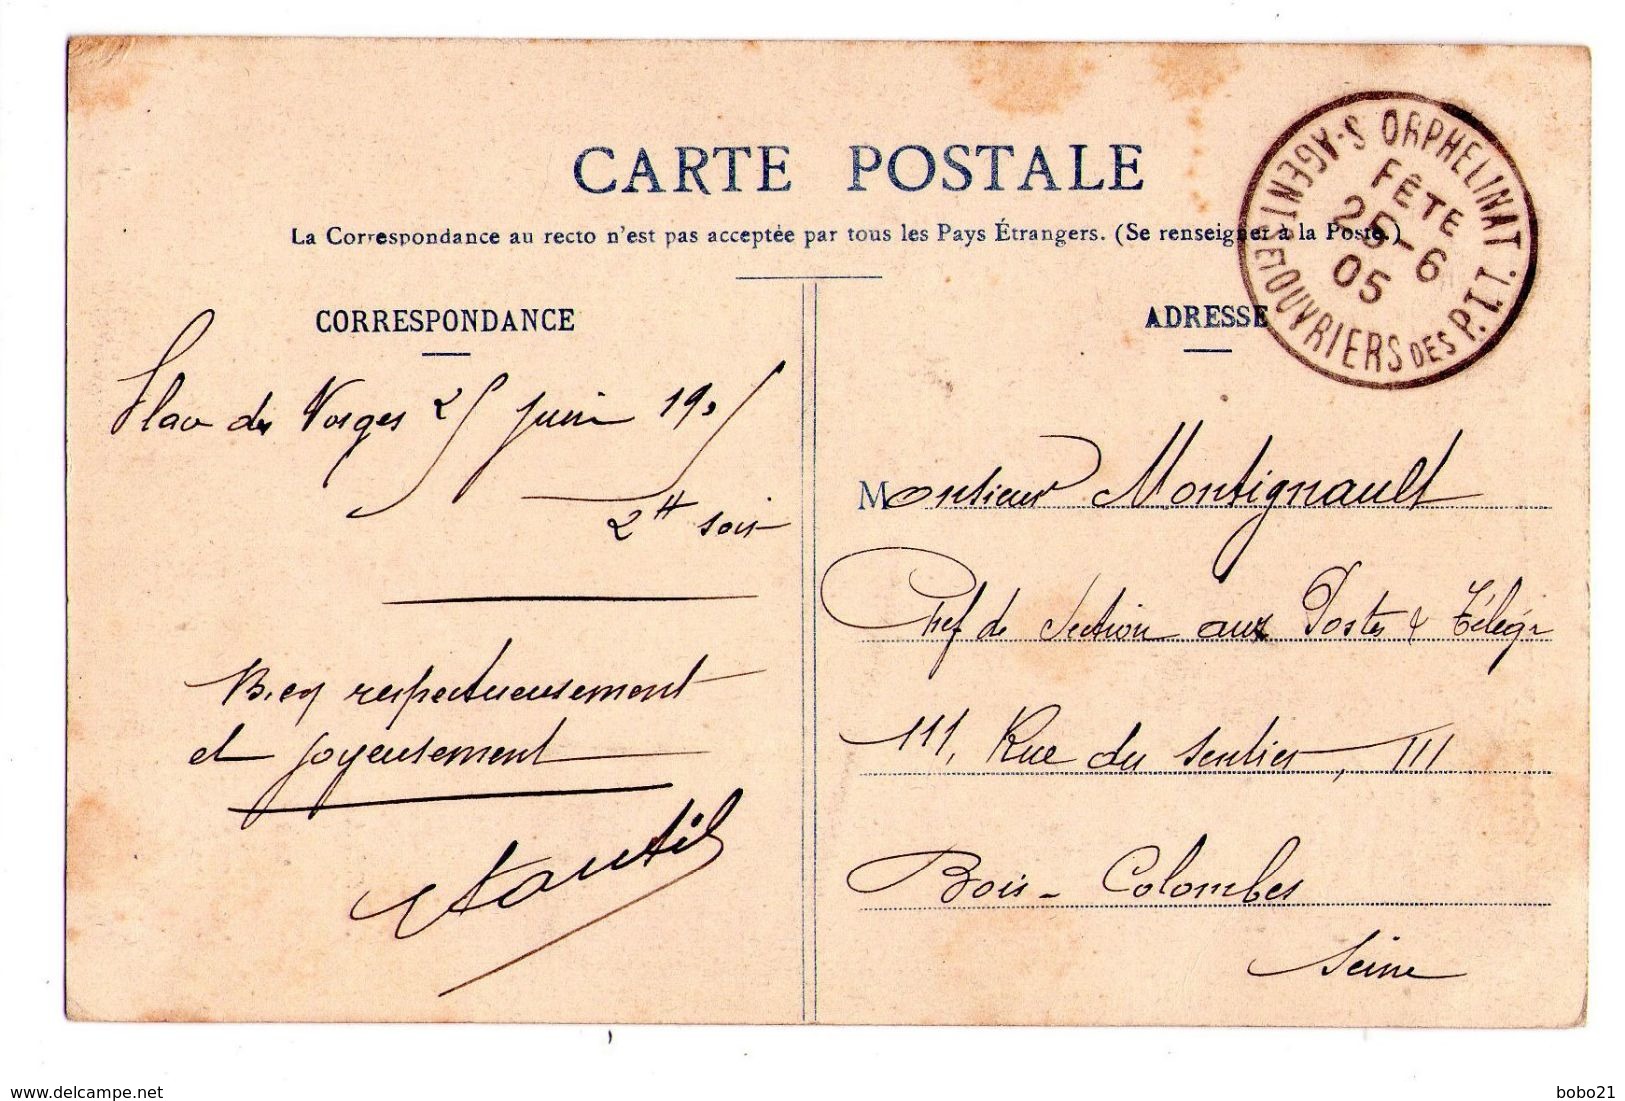 CARTE POSTALE
La Correspondance au recto n'est pas acceptée par tous les Pays Étrangers. (Se renseigner à la Poste.)
ORPHELINAT S.-AGENTS ET OUVRIERS DES P.T.T.
FÊTE
25-6
05
CORRESPONDANCE
Place des Vosges 25 juin 1905
2 H soir
Bien respectueusement
et joyeusement
ADRESSE
Monsieur Montignault
Chef de Section aux Postes & Télégr
111, Rue du Sentier, 111
Bois-Colombes
Seine
delcampe.net
bobo21